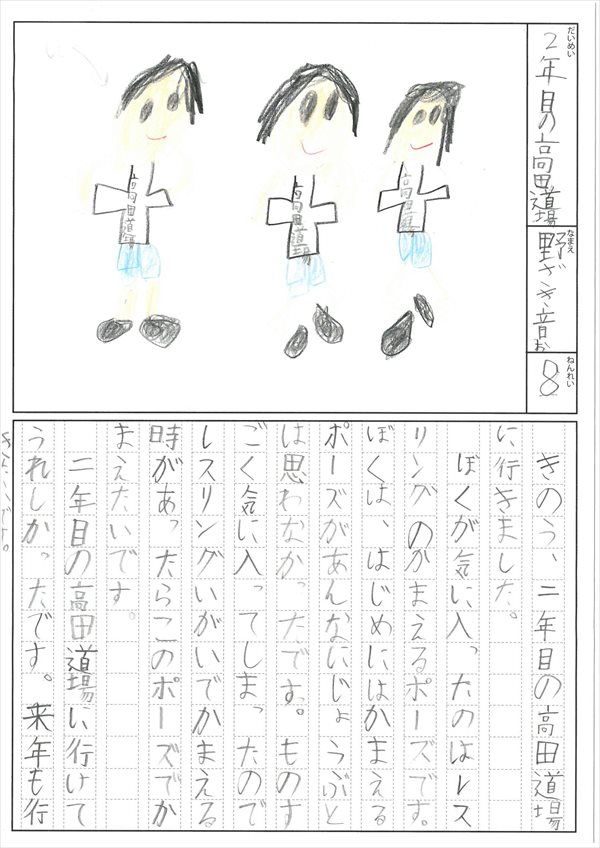 だいめい
2年目の高田道場
なまえ
野ざき音お
ねんれい
8
高田道場
高田道場
高田道場
きのう、二年目の高田道場
に行きました。
ぼくが気に入ったのはレス
リングのかまえるポーズです。
ぼくは、はじめにはかまえる
ポーズがあんなにじょうぶと
は思わなかったです。ものす
ごく気に入ってしまったので
レスリングいがいでかまえる
時があったらこのポーズでか
まえたいです。
二年目の高田道場に行けて
うれしかったです。来年も行
きたいです。